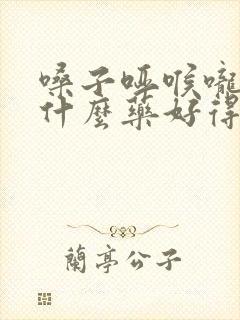 嗓子哑喉嚨
什麼藥好得
蘭亭公子